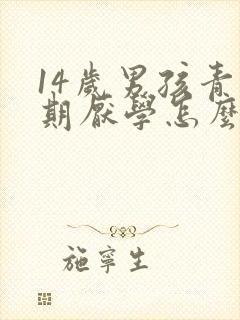 14歲男孩青
期厭學怎麼
施寧生